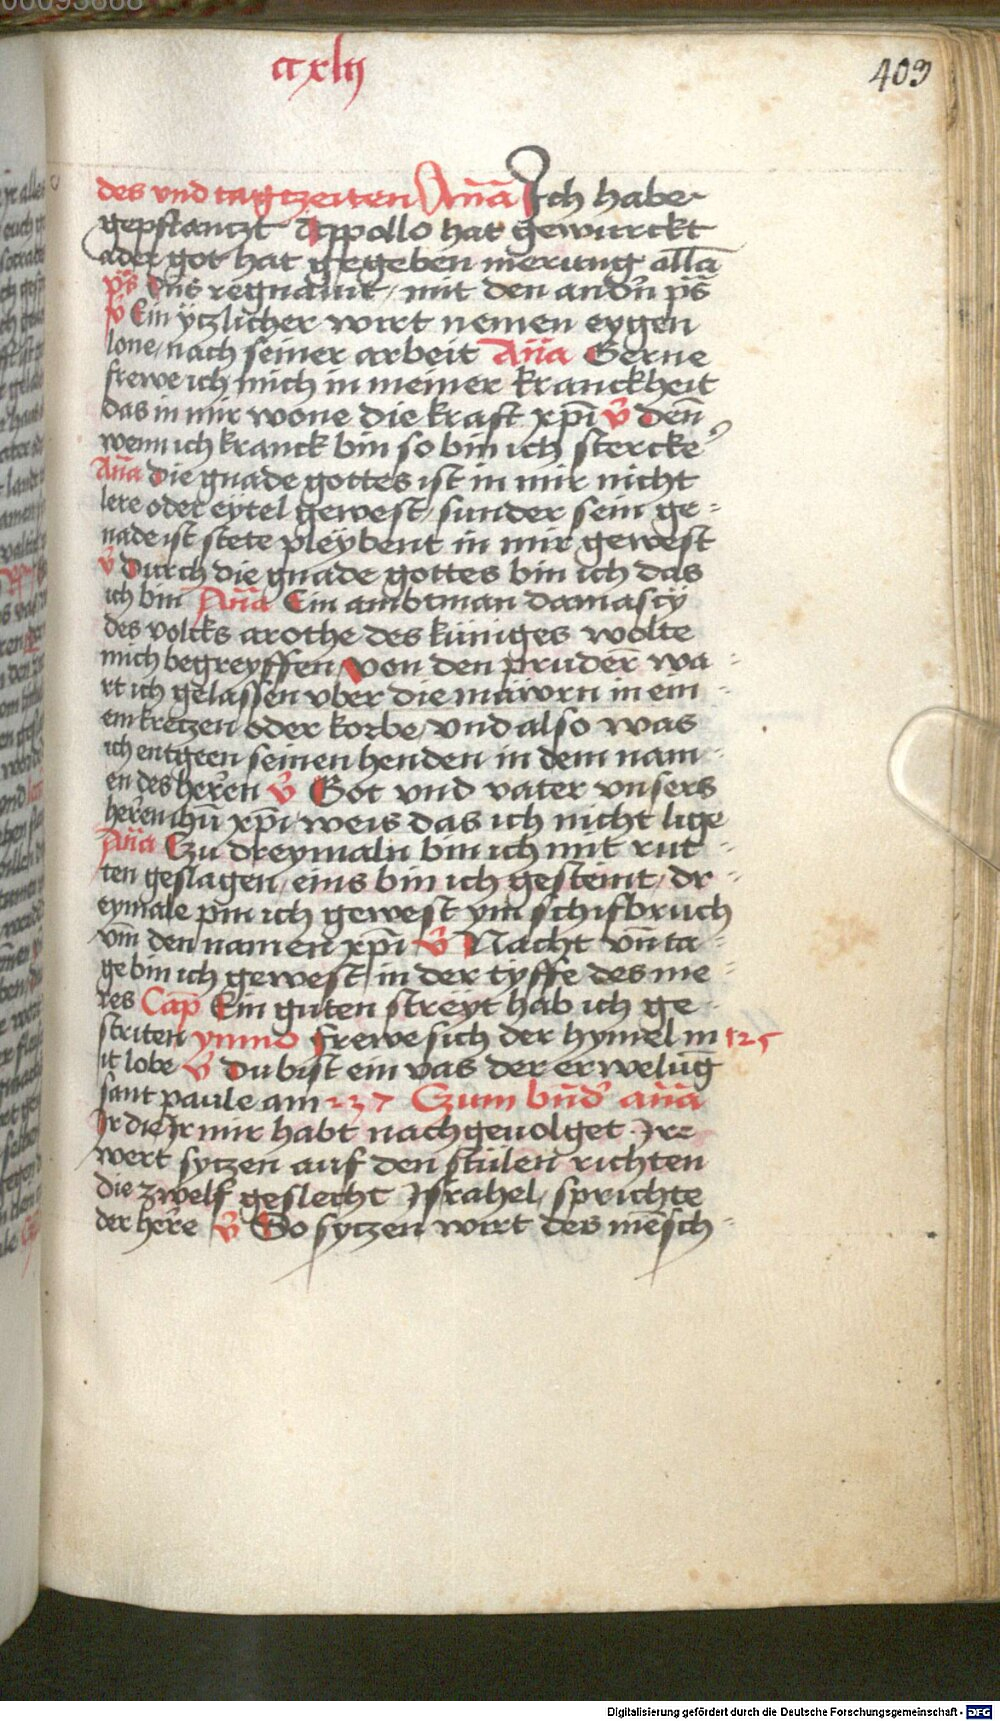 ccxlij
409
des vnd tagtzeiten Añā Ich habe
gepflanczt Appollo hat gewurckt
ader got hat gegeben merung allā
ps̄ Dn̄s regnauit / mit den andn̄ ps̄
v̄ Ein yczlicher wirt nemen eygen
lone / nach seiner arbeit Añā Gerne
frewe ich mich in meiner kranckheit
das in mir wone die kraft xp̄i v̄ den̄
wenn ich kranck bin so bin ich stercke
Añā Die gnade gottes ist in mir nicht
lere oder eytel gewest / sunder sein ge
nade ist stete pleybent in mir gewest
v̄ Durch die gnade gottes bin ich das
ich bin Añā Ein ambtman damascÿ
des volcks arothe des küniges wolte
mich begreyffen / von den pruder̄ wa
rt ich gelassen vber die mawrn in ein
em kreczen oder korbe / vnd also was
ich entgeen seinen henden in dem nam
en des heren v̄ Got vnd vater vnsers
heren ihū xp̄i / weis das ich nicht lige
Añā Czu dreymaln bin ich mit rut
ten geslagen / eins bin ich gesteint / dr
eymale pin ich gewest ym schifbruch
vm̄ den namen xp̄i v̄ Nacht vn̄ ta
ge bin ich gewest / in der tyffe des me
res Cap̄ Ein guten streyt hab ich ge
striten ymnō frewe sich der hymel m 125
it lobe v̄ Du bist ein vas der erwelūg
sant paule am 237 Czum bn̄d' añā
Ir die Ir mir habt nachgeuolget . Ir
wert syczen auf den stülen richten
die zwelf geslecht Israhel / sprichte
der here v̄ So syczen wirt des mēsch
Digitalisierung gefördert durch die Deutsche Forschungsgemeinschaft - DFG